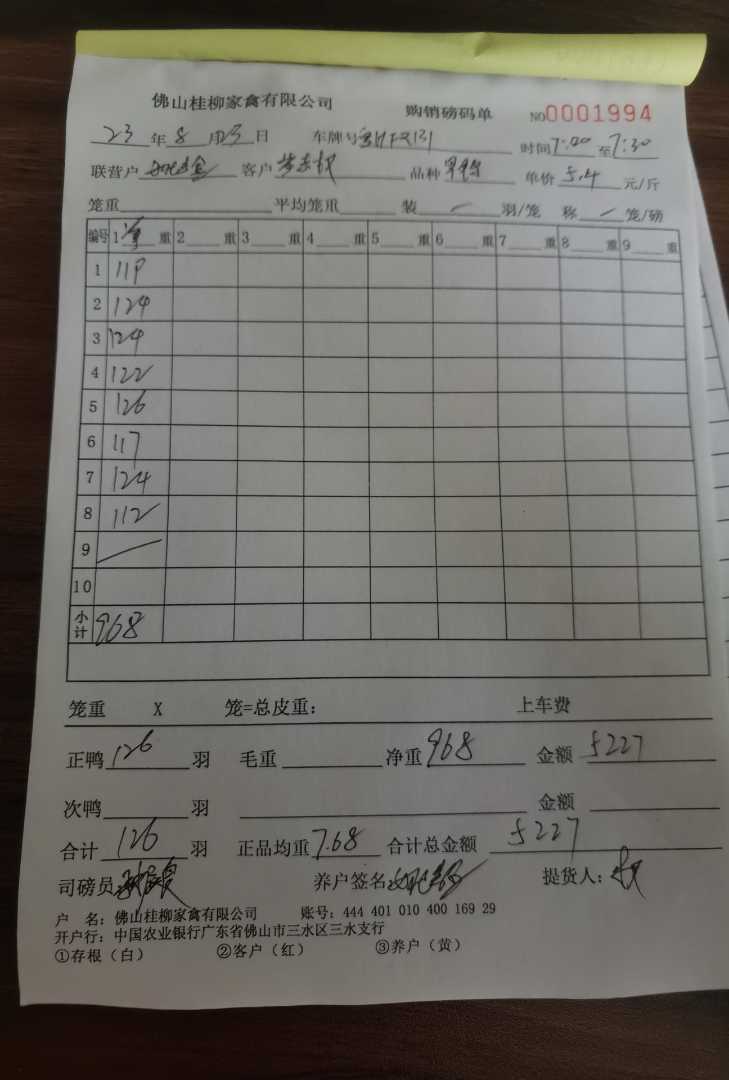 佛山桂柳家禽有限公司 购销磅码单 NO0001994
23年8月23日 车牌号 时间7:00至7:30
联营户 客户 品种 单价5.4元/斤
笼重 平均笼重 装 羽/笼 称 笼/磅
编号 1 重 2 重 3 重 4 重 5 重 6 重 7 重 8 重 9 重
1 119
2 124
3 124
4 122
5 126
6 117
7 124
8 112
9
10
小计 968
笼重 X 笼=总皮重： 上车费
正鸭126羽 毛重 净重968 金额5227
次鸭 羽 金额
合计126羽 正品均重7.68 合计总金额5227
司磅员 养户签名 提货人：
户 名：佛山桂柳家禽有限公司 账号：444 401 010 400 169 29
开户行：中国农业银行广东省佛山市三水区三水支行
①存根（白） ②客户（红） ③养户（黄）